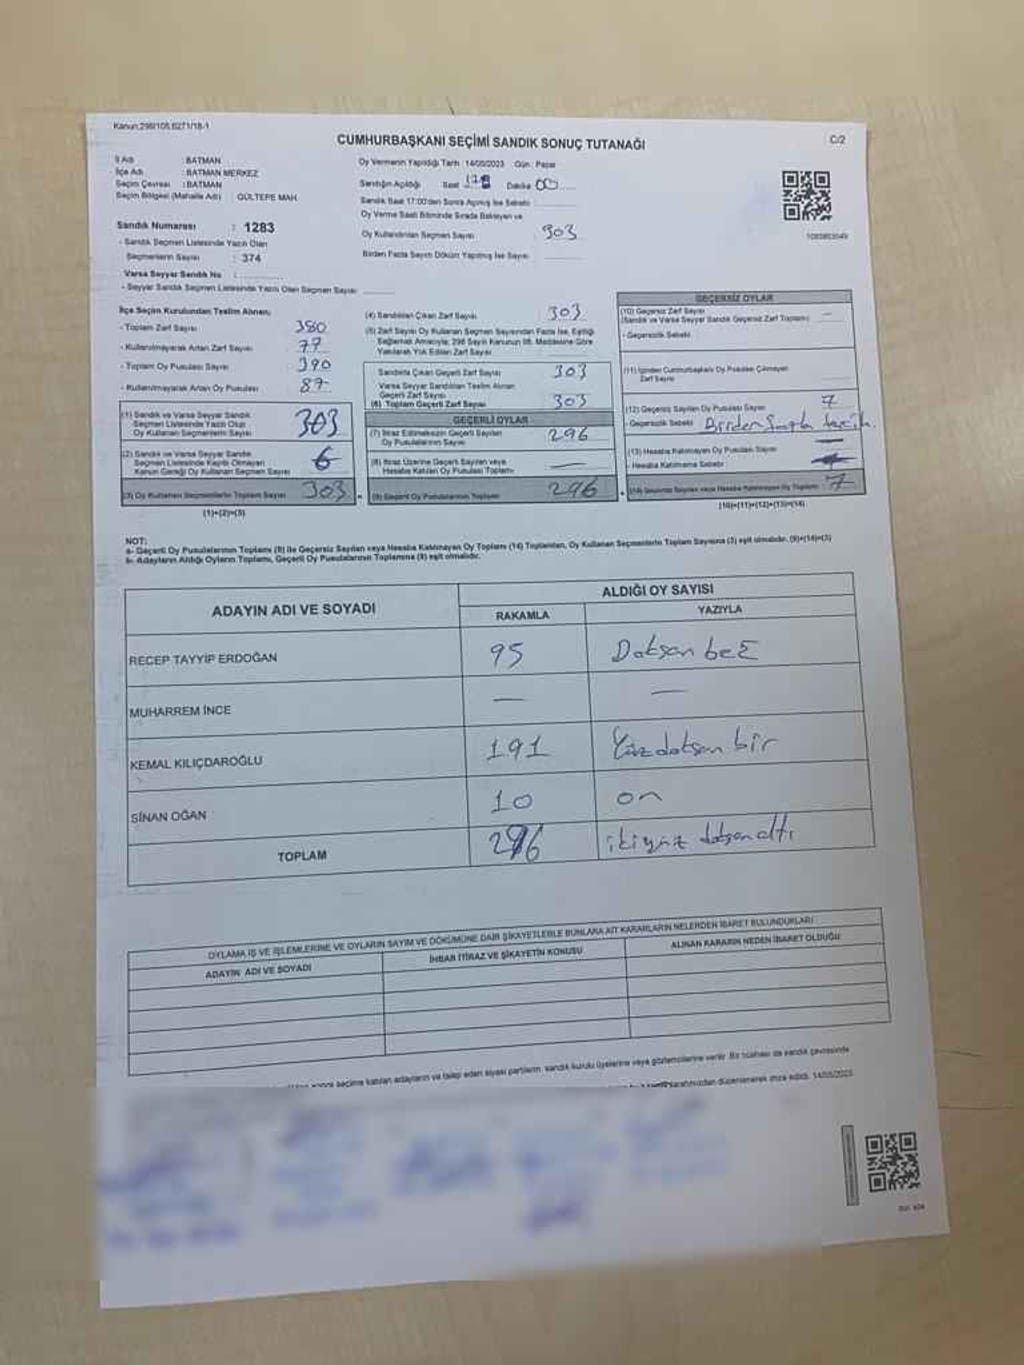 Kanun:298/105,6271/18-1
CUMHURBAŞKANI SEÇİMİ SANDIK SONUÇ TUTANAĞI
C/2
İl Adı : BATMAN
İlçe Adı : BATMAN MERKEZ
Seçim Çevresi : BATMAN
Seçim Bölgesi (Mahalle Adı) GÜLTEPE MAH.
Oy Vermenin Yapıldığı Tarih : 14/05/2023 Gün : Pazar
Sandığın Açıldığı Saat Dakika 00
Sandık Saat 17:00'den Sonra Açılmış İse Sebebi
Oy Verme Saati Bitiminde Sırada Bekleyen ve
Oy Kullandırılan Seçmen Sayısı 303
Birden Fazla Sayım Döküm Yapılmış İse Sayısı
Sandık Numarası : 1283
- Sandık Seçmen Listesinde Yazılı Olan
Seçmenlerin Sayısı : 374
Varsa Seyyar Sandık No :
- Seyyar Sandık Seçmen Listesinde Yazılı Olan Seçmen Sayısı
İlçe Seçim Kurulundan Teslim Alınan;
- Toplam Zarf Sayısı 380
- Kullanılmayarak Artan Zarf Sayısı 77
- Toplam Oy Pusulası Sayısı 390
- Kullanılmayarak Artan Oy Pusulası 87
(1) Sandık ve Varsa Seyyar Sandık
Seçmen Listesinde Yazılı Olup
Oy Kullanan Seçmenlerin Sayısı 303
(2) Sandık ve Varsa Seyyar Sandık
Seçmen Listesinde Kayıtlı Olmayan
Kanun Gereği Oy Kullanan Seçmen Sayısı
(3) Oy Kullanan Seçmenlerin Toplam Sayısı 303
(1)+(2)=(3)
(4) Sandıktan Çıkan Zarf Sayısı 303
(5) Zarf Sayısı Oy Kullanan Seçmen Sayısından Fazla İse, Eşitliği
Sağlamak Amacıyla; 298 Sayılı Kanunun 98. Maddesine Göre
Yakılarak Yok Edilen Zarf Sayısı
Sandıkta Çıkan Geçerli Zarf Sayısı 303
Varsa Seyyar Sandıktan Teslim Alınan
Geçerli Zarf Sayısı
(6) Toplam Geçerli Zarf Sayısı 303
GEÇERLİ OYLAR
(7) İtiraz Edilmeksizin Geçerli Sayılan
Oy Pusulalarının Sayısı 296
(8) İtiraz Üzerine Geçerli Sayılan veya
Hesaba Katılan Oy Pusulaları Toplamı —
(9) Geçerli Oy Pusulalarının Toplamı 296
GEÇERSİZ OYLAR
(10) Geçersiz Zarf Sayısı
(Sandık ve Varsa Seyyar Sandık Geçersiz Zarf Toplamı) —
- Geçersizlik Sebebi
(11) İçinden Cumhurbaşkanı Oy Pusulası Çıkmayan
Zarf Sayısı
(12) Geçersiz Sayılan Oy Pusulası Sayısı 7
- Geçersizlik Sebebi Birden fazla tercih
(13) Hesaba Katılmayan Oy Pusulası Sayısı —
- Hesaba Katılmama Sebebi
(14) Geçersiz Sayılan veya Hesaba Katılmayan Oy Toplamı 7
(10)+(11)+(12)+(13)=(14)
NOT:
a- Geçerli Oy Pusulalarının Toplamı (9) ile Geçersiz Sayılan veya Hesaba Katılmayan Oy Toplamı (14) Toplamları, Oy Kullanan Seçmenlerin Toplam Sayısına (3) eşit olmalıdır. (9)+(14)=(3)
b- Adayların Aldığı Oyların Toplamı, Geçerli Oy Pusulalarının Toplamına (9) eşit olmalıdır.
ADAYIN ADI VE SOYADI
ALDIĞI OY SAYISI
RAKAMLA YAZIYLA
RECEP TAYYİP ERDOĞAN 95 Doksan beş
MUHARREM İNCE — —
KEMAL KILIÇDAROĞLU 191 Yüzdoksan bir
SİNAN OĞAN 10 on
TOPLAM 296 ikiyüz doksan altı
OYLAMA İŞ VE İŞLEMLERİNE VE OYLARIN SAYIM VE DÖKÜMÜNE DAİR ŞİKAYETLERLE BUNLARA AİT KARARLARIN NELERDEN İBARET BULUNDUKLARI
ADAYIN ADI VE SOYADI İHBAR İTİRAZ VE ŞİKAYETİN KONUSU ALINAN KARARIN NEDEN İBARET OLDUĞU
seçime katılan adayların ve talep eden siyasi partilerin, sandık kurulu üyelerine veya gözlemcilerine verilir. Bir nüshası da sandık çevresinde
tarafımızdan düzenlenerek imza edildi. 14/05/2023